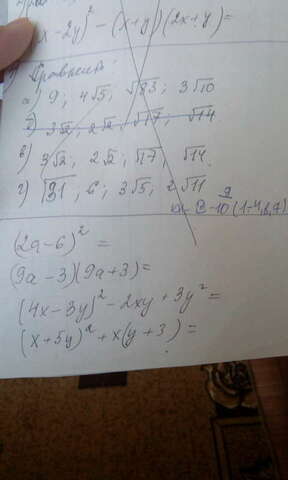 x - 2y)² - (x+y)(2x+y) =
Сравните:
а) 9; 4√5; √83; 3√10
б) 3√2; 2√2; √17; √14
в) 3√2; 2√2; √17; √14.
г) √31; 6; 3√5; 2√11
(2a-6)² =
(9a-3)(9a+3) =
(4x-3y)² - 2xy + 3y² =
(x+5y)² + x(y+3) =